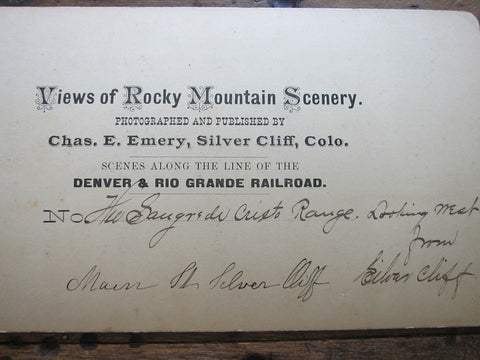 Views of Rocky Mountain Scenery.
PHOTOGRAPHED AND PUBLISHED BY
Chas. E. Emery, Silver Cliff, Colo.
SCENES ALONG THE LINE OF THE
DENVER & RIO GRANDE RAILROAD.
No The Sangre de Cristo Range. Looking West
from
Main St. Silver Cliff Silver Cliff